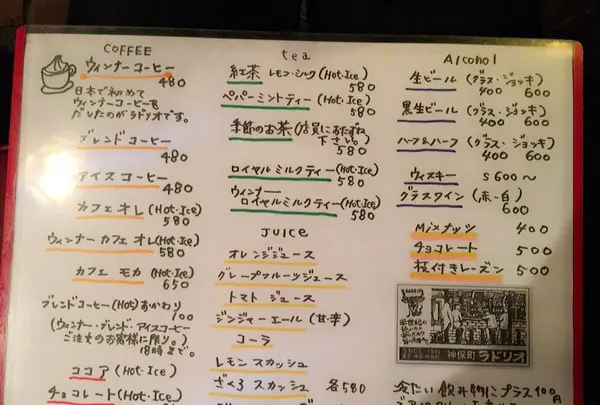 COFFEE
ウィンナーコーヒー
480
日本で初めて
ウィンナーコーヒーを
だしたのがラドリオです。
ブレンドコーヒー
480
アイスコーヒー
480
カフェオレ(Hot・Ice)
580
ウィンナーカフェオレ(Hot・Ice)
580
カフェ モカ (Hot・Ice)
650
ブレンドコーヒー(Hot)おかわり
100
(ウィンナー・ブレンド・アイスコーヒー
ご注文のお客様に限り。)
18時まで。
ココア (Hot・Ice)
チョコレート(Hot・Ice)
tea
紅茶 レモン・ミルク(Hot・Ice)
580
ペパーミントティー(Hot・Ice)
580
季節のお茶(店員におたずね
下さい。)
580
ロイヤルミルクティー(Hot・Ice)
580
ウィンナー
ロイヤルミルクティー(Hot・Ice)
580
JUICE
オレンジジュース
グレープフルーツジュース
トマト ジュース
ジンジャーエール(甘・辛)
コーラ
レモン スカッシュ
ざくろ スカッシュ 各580
Alcohol
生ビール (グラス・ジョッキ)
400 600
黒生ビール (グラス・ジョッキ)
400 600
ハーフ&ハーフ (グラス・ジョッキ)
400 600
ウィスキー S 600〜
グラスワイン (赤・白)
600
Mixナッツ 400
チョコレート 500
枝付きレーズン 500
SINCE 1949
神保町 ラドリオ
冷たい飲み物にプラス100円